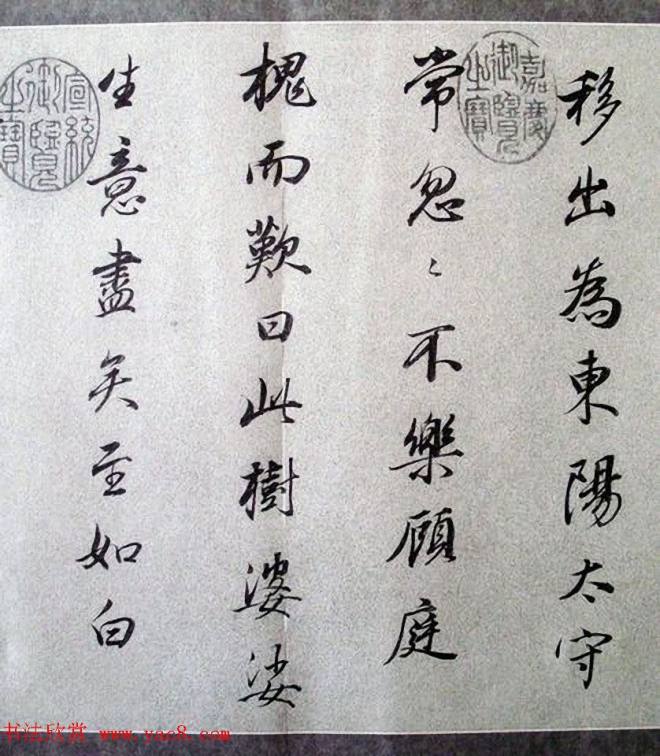 移出為東陽太守
常忽〻不樂顧庭
槐而歎曰此樹婆娑
生意盡矣至如白
嘉慶御覽之寶
宣統御覽之寶
书法欣赏 www.yac8.com